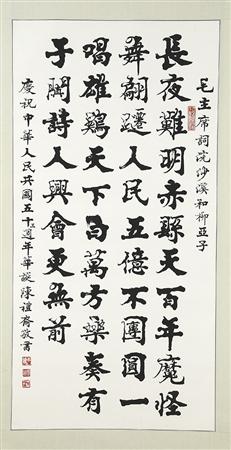 毛主席詞浣沙溪和柳亞子
長夜難明赤縣天百年魔怪
舞翩躚人民五億不團圓一
唱雄鷄天下白萬方樂奏有
于闐詩人興會更無前
慶祝中華人民共國五十週年華誕陳禮齋敬書